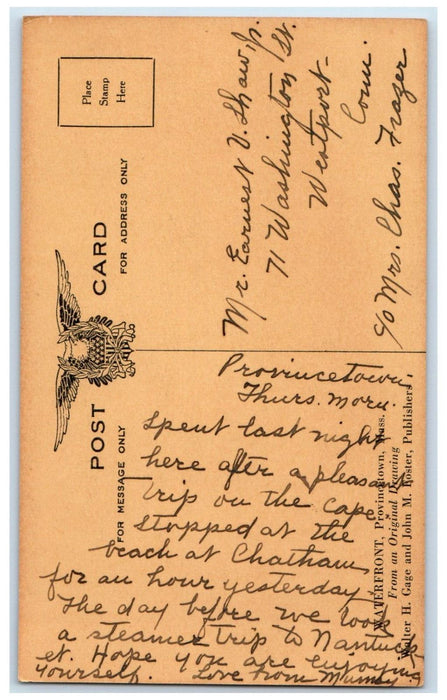 Place
Stamp
Here
POST CARD
FOR ADDRESS ONLY
FOR MESSAGE ONLY
Mr. Earnest V. Shaw, Jr.
71 Washington St.
Westport-
Conn.
c/o Mrs. Chas. Frazer
Provincetown,
Thurs. Morn.
Spent last night
here after a pleasant
trip on the Cape.
Stopped at the
beach at Chatham
for an hour yesterday.
The day before we took
a steamer trip to Nantuck-
et. Hope you are enjoying
yourself. Love from Mumsy
WATERFRONT, Provincetown, Mass.
From an Original Drawing
Walter H. Gage and John M. Foster, Publishers